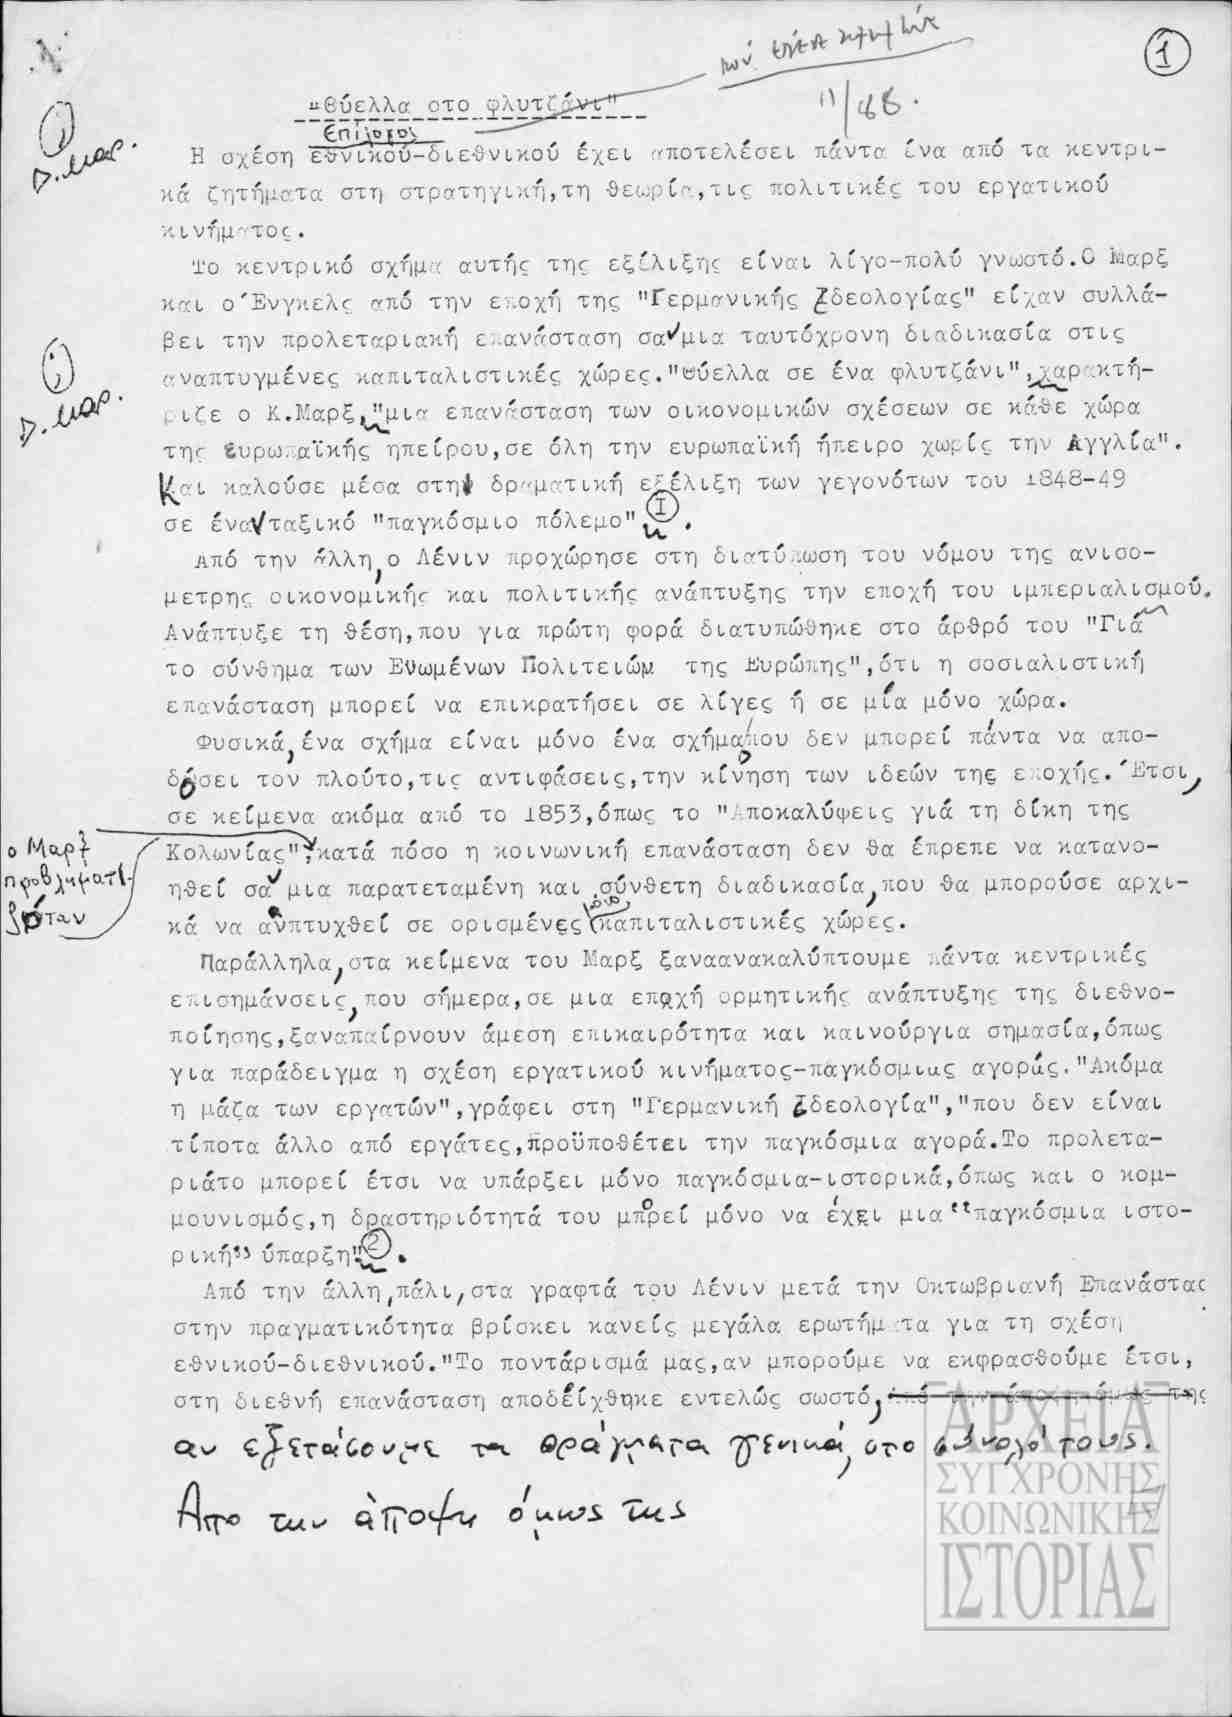 1
11/88.
"Θύελλα στο φλυτζάνι"
Επίλογος
Η σχέση εθνικού-διεθνικού έχει αποτελέσει πάντα ένα από τα κεντρι-
κά ζητήματα στη στρατηγική,τη θεωρία,τις πολιτικές του εργατικού
κινήματος.
Το κεντρικό σχήμα αυτής της εξέλιξης είναι λίγο-πολύ γνωστό.Ο Μαρξ
και ο Ένγκελς από την εποχή της "Γερμανικής Ιδεολογίας" είχαν συλλά-
βει την προλεταριακή επανάσταση σα μια ταυτόχρονη διαδικασία στις
αναπτυγμένες καπιταλιστικές χώρες."Θύελλα σε ένα φλυτζάνι",χαρακτή-
ριζε ο Κ.Μαρξ,"μια επανάσταση των οικονομικών σχέσεων σε κάθε χώρα
της ευρωπαϊκής ηπείρου,σε όλη την ευρωπαϊκή ήπειρο χωρίς την Αγγλία".
Και καλούσε μέσα στη δραματική εξέλιξη των γεγονότων του 1848-49
σε ένα ταξικό "παγκόσμιο πόλεμο" Ι .
Από την άλλη,ο Λένιν προχώρησε στη διατύπωση του νόμου της ανισο-
μετρης οικονομικής και πολιτικής ανάπτυξης την εποχή του ιμπεριαλισμού.
Ανάπτυξε τη θέση,που για πρώτη φορά διατυπώθηκε στο άρθρό του "Γιά
το σύνθημα των Ενωμένων Πολιτειών της Ευρώπης",ότι η σοσιαλιστική
επανάσταση μπορεί να επικρατήσει σε λίγες ή σε μία μόνο χώρα.
Φυσικά,ένα σχήμα είναι μόνο ένα σχήμα που δεν μπορεί πάντα να απο-
δόσει τον πλούτο,τις αντιφάσεις,την κίνηση των ιδεών της εποχής. Έτσι,
σε κείμενα ακόμα από το 1853,όπως το "Αποκαλύψεις γιά τη δίκη της
ο Μαρξ
προβληματι-
ζόταν
Κολωνίας",κατά πόσο η κοινωνική επανάσταση δεν θα έπρεπε να κατανο-
ηθεί σα μια παρατεταμένη και σύνθετη διαδικασία,που θα μπορούσε αρχι-
κά να αναπτυχθεί σε ορισμένες μόνο καπιταλιστικές χώρες.
Παράλληλα,στα κείμενα του Μαρξ ξαναανακαλύπτουμε πάντα κεντρικές
επισημάνσεις,που σήμερα,σε μια εποχή ορμητικής ανάπτυξης της διεθνο-
ποίησης,ξαναπαίρνουν άμεση επικαιρότητα και καινούργια σημασία,όπως
για παράδειγμα η σχέση εργατικού κινήματος-παγκόσμιας αγοράς."Ακόμα
η μάζα των εργατών",γράφει στη "Γερμανική Ιδεολογία","που δεν είναι
τίποτα άλλο από εργάτες,προϋποθέτει την παγκόσμια αγορά.Το προλετα-
ριάτο μπορεί έτσι να υπάρξει μόνο παγκόσμια-ιστορικά,όπως και ο κομ-
μουνισμός,η δραστηριότητά του μπορεί μόνο να έχει μια "παγκόσμια ιστο-
ρική" ύπαρξη" 2 .
Από την άλλη,πάλι,στα γραφτά του Λένιν μετά την Οκτωβριανή Επανάστας
στην πραγματικότητα βρίσκει κανείς μεγάλα ερωτήματα για τη σχέση
εθνικού-διεθνικού."Το ποντάρισμά μας,αν μπορούμε να εκφρασθούμε έτσι,
στη διεθνή επανάσταση αποδείχθηκε εντελώς σωστό, από την άποψη όμως της
αν εξετάσουμε τα πράγματα γενικά, στο σύνολό τους.
Απο την άποψη όμως της
Δ. Μαρ.
Δ. Μαρ.
ΑΡΧΕΙΑ
ΣΥΓΧΡΟΝΗΣ
ΚΟΙΝΩΝΙΚΗΣ
ΙΣΤΟΡΙΑΣ